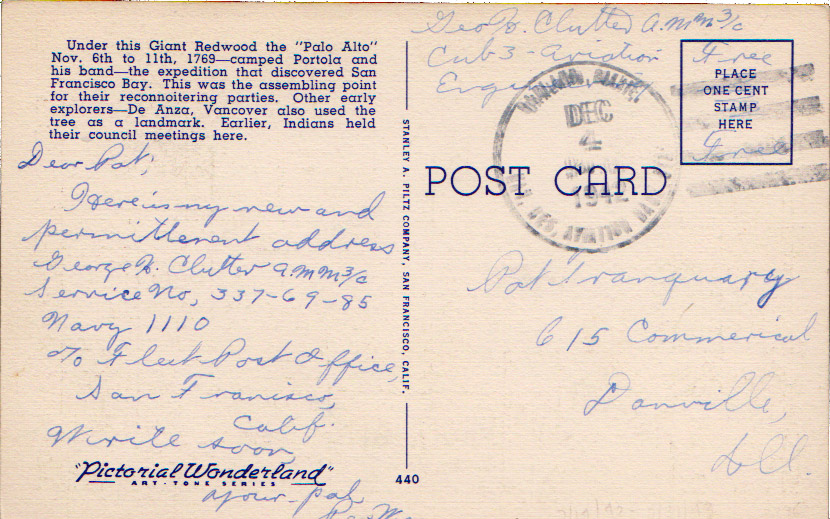 Under this Giant Redwood the "Palo Alto"
Nov. 6th to 11th, 1769—camped Portola and
his band—the expedition that discovered San
Francisco Bay. This was the assembling point
for their reconnoitering parties. Other early
explorers—De Anza, Vancover also used the
tree as a landmark. Earlier, Indians held
their council meetings here.
Dear Pat,
Here is my new and
permittenent address
George H. Clutter A.M.M3/c
Service No, 337-69-85
Navy 1110
c/o Fleet Post Office,
San Franisco,
Calif.
Write soon,
"Pictorial Wonderland"
ART-TONE SERIES
your pal,
STANLEY A. PILTZ COMPANY, SAN FRANCISCO, CALIF.
440
Geo H. Clutter A.M.M3/c
Cub 3 - Aviation
Free
PLACE
ONE CENT
STAMP
HERE
Free
DEC
4
1942
POST CARD
Pat Tranquary
615 Commerical
Danville,
Ill.